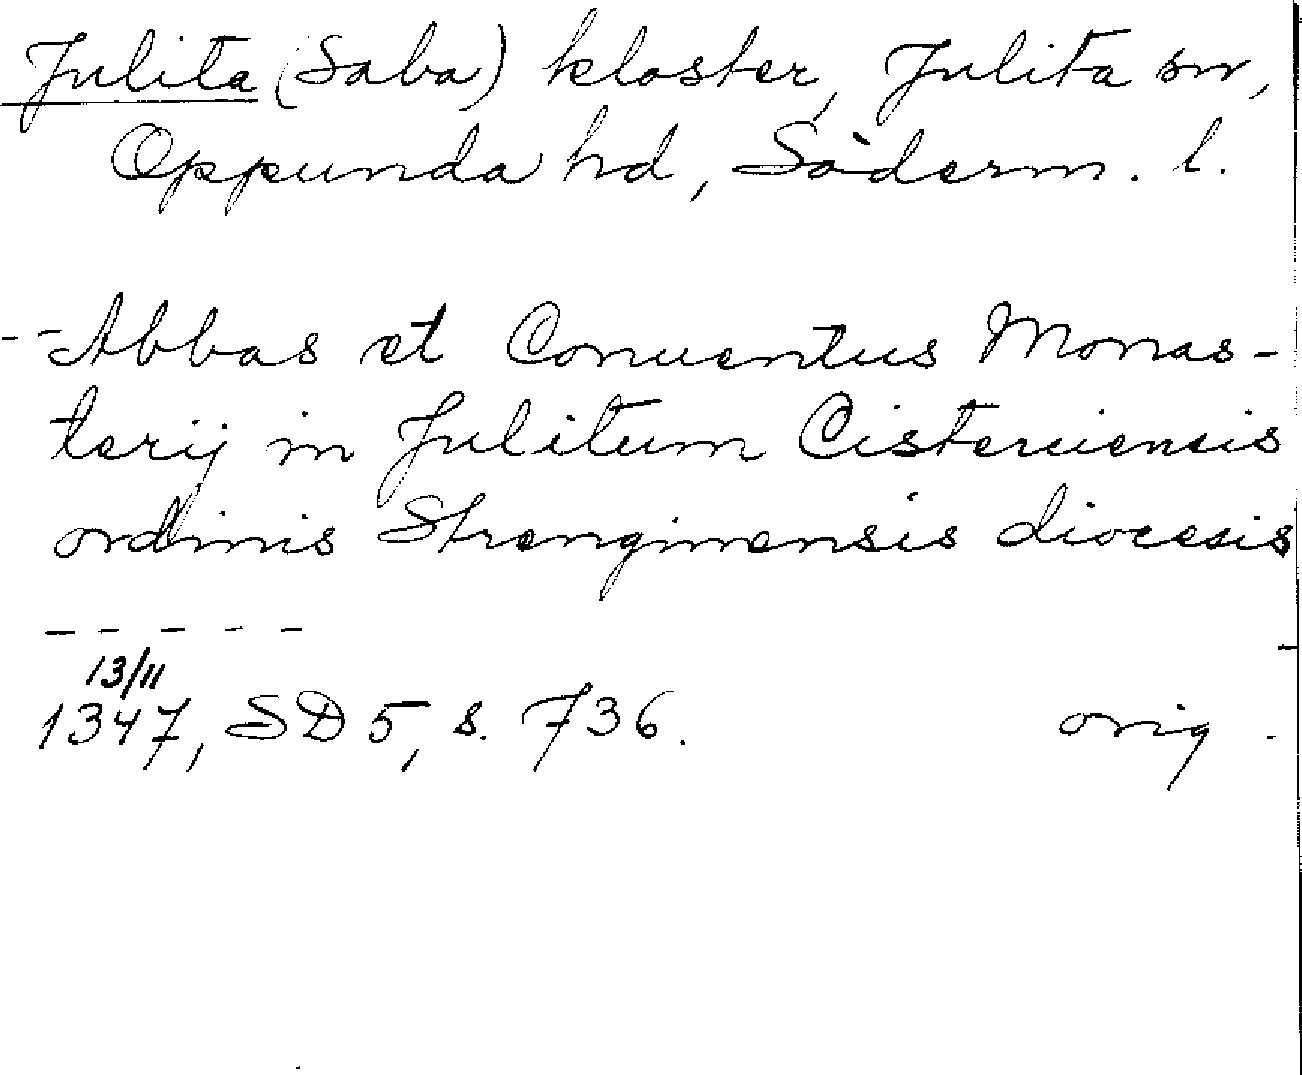 Julita (Saba) kloster, Julita sn,
Oppunda hd, Söderm. l.
-- Abbas et Conuentus Monas-
terij in Julitum Cisterciensis
ordinis Strenginensis diocesis
- - - - -
13/11
1347, SD 5, s. 736. orig.